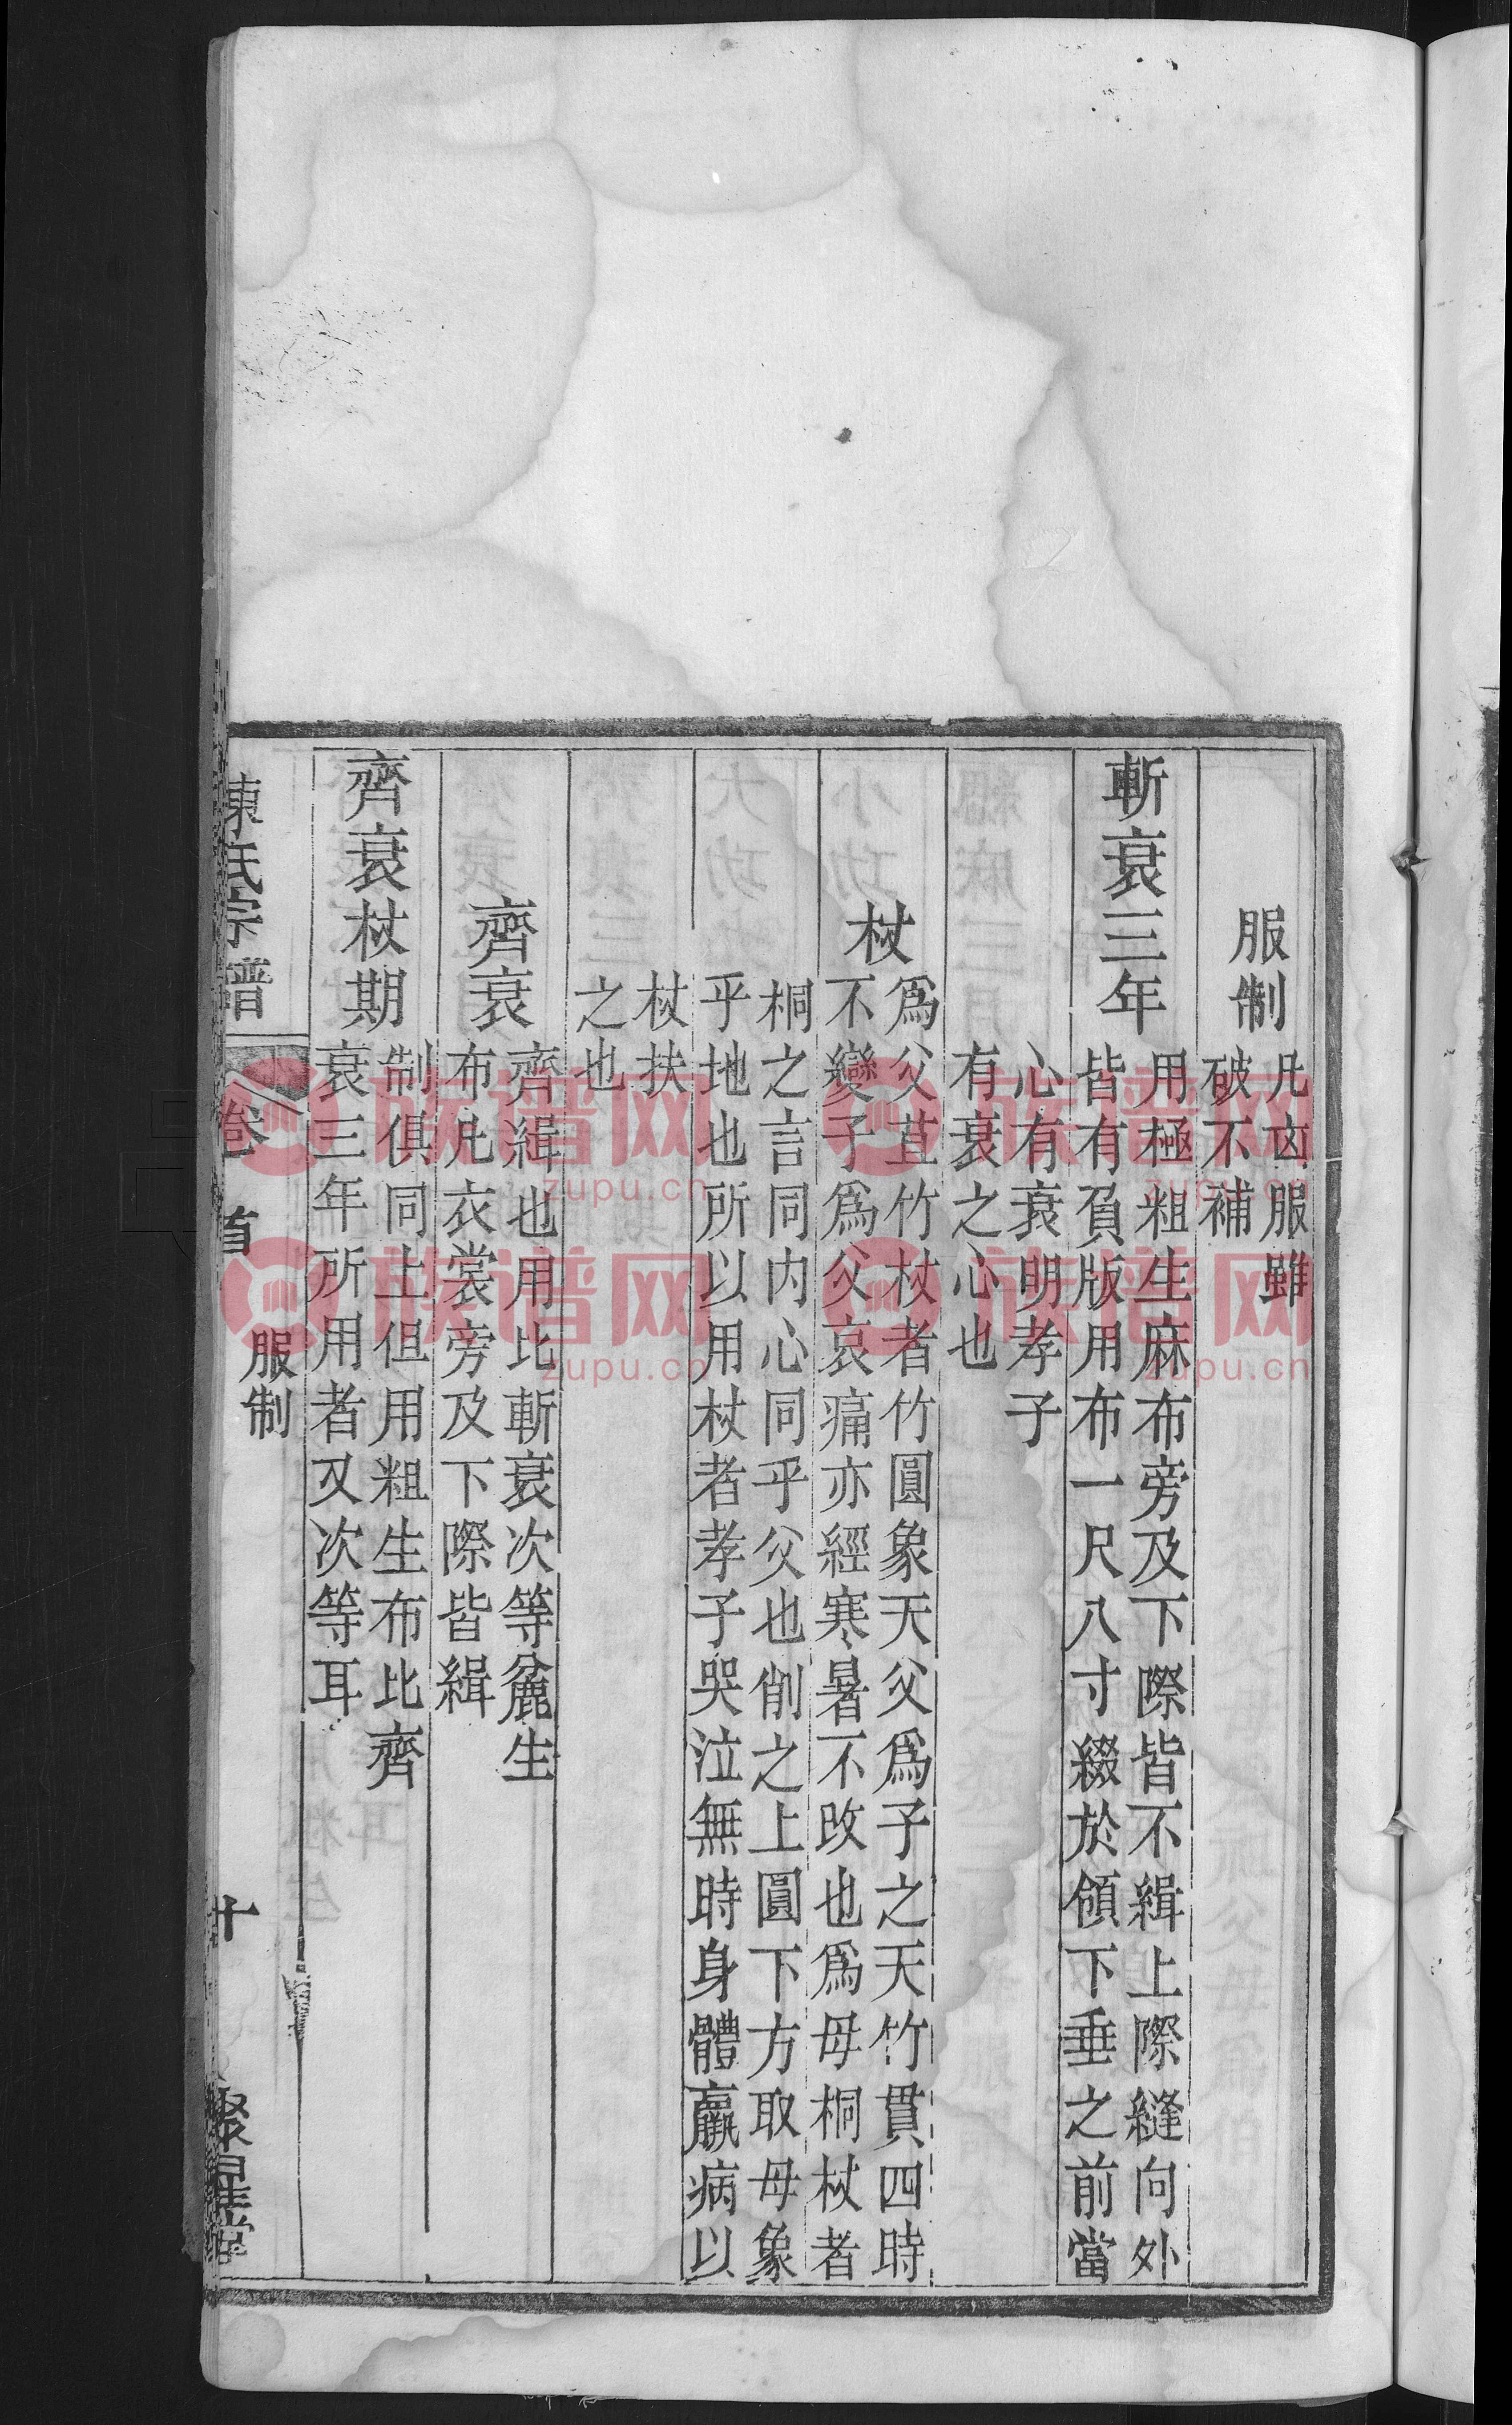 服制
凡凶服雖
破不補
斬衰三年
用極粗生麻布旁及下際皆不緝上際縫向外
皆有負版用布一尺八寸綴於領下垂之前當
心有衰明孝子
有衰之心也
杖
爲父苴竹杖者竹圓象天父爲子之天竹貫四時
不變子爲父哀痛亦經寒暑不改也爲母桐杖者
桐之言同内心同乎父也削之上圓下方取母象
乎地也所以用杖者孝子哭泣無時身體羸病以
杖扶
之也
齊衰
齊緝也用比斬衰次等麄生
布凡衣裳旁及下際皆緝
齊衰杖期
制俱同上但用粗生布比齊
衰三年所用者又次等耳
陳氏宗譜
卷首
服制
十
聚星堂
族谱网
zupu.cn
族谱网
zupu.cn
族谱网
zupu.cn
族谱网
zupu.cn